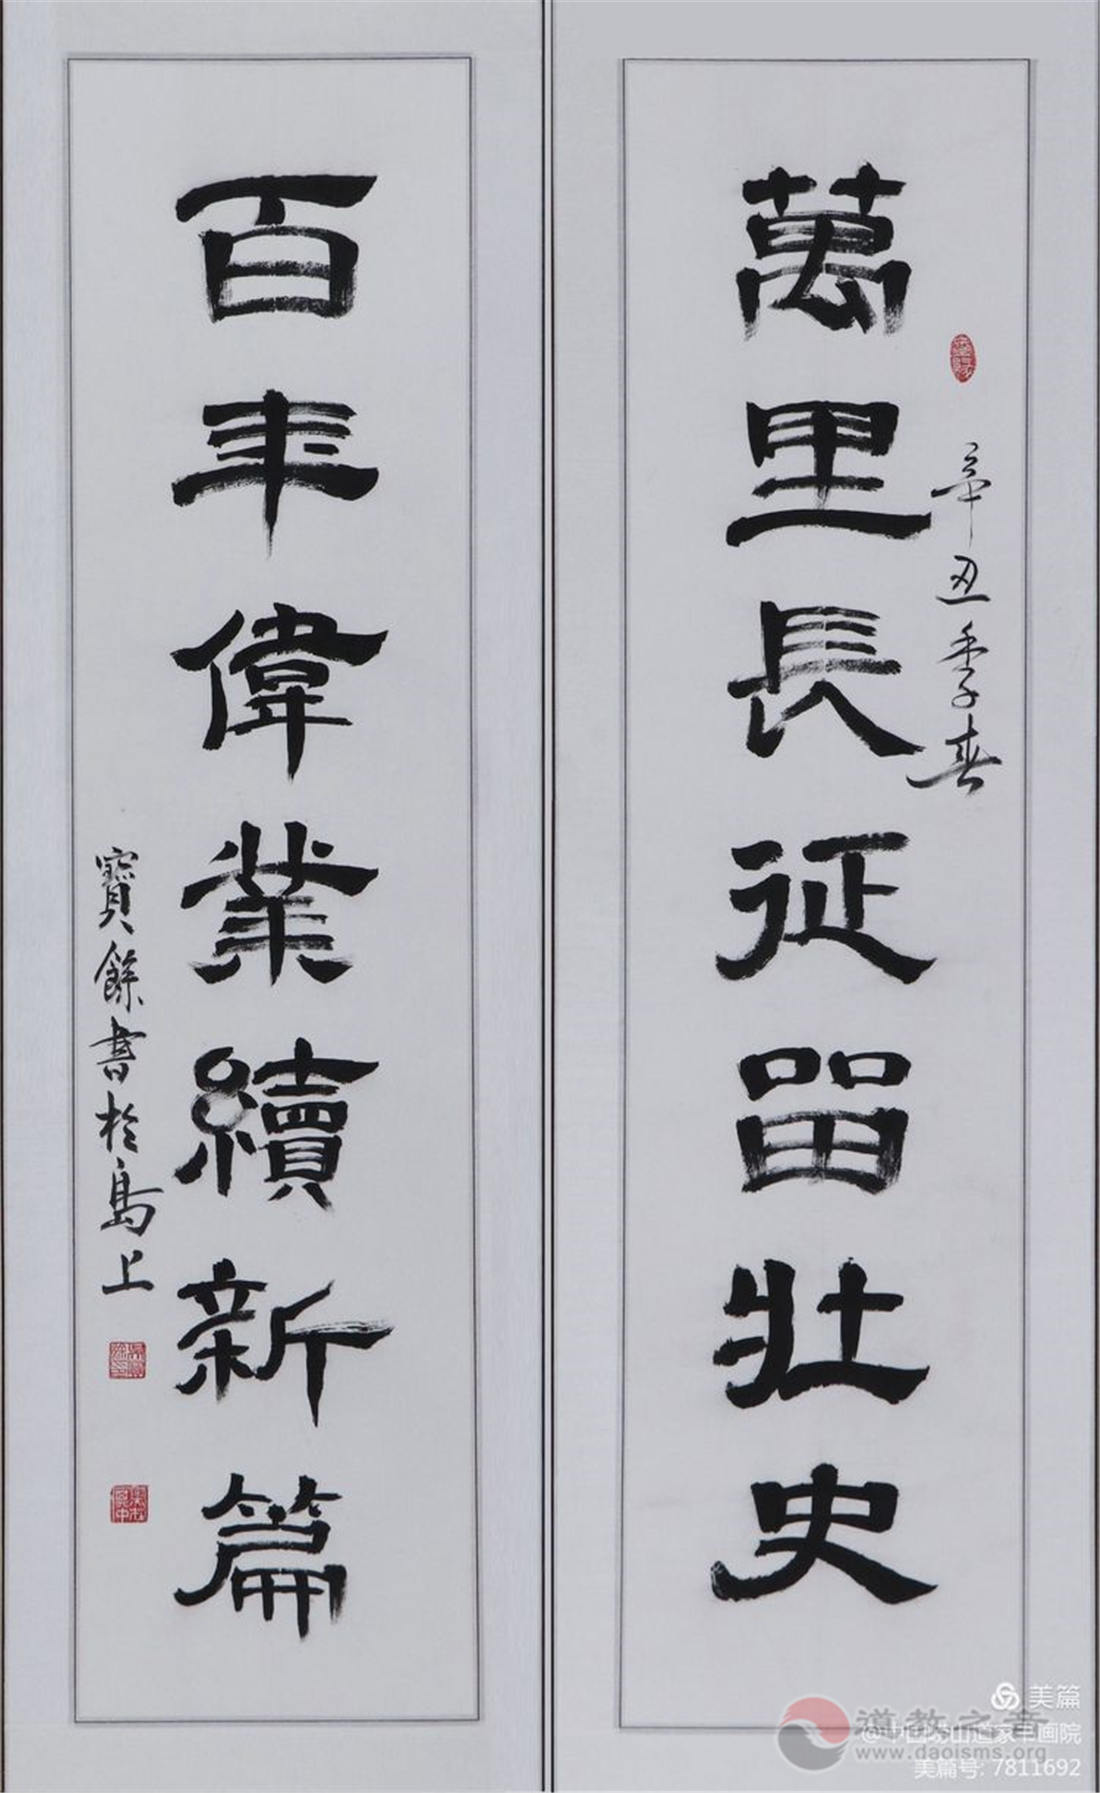 萬里長征留壯史
辛丑季春
百年偉業續新篇
寶餘書於島上
美篇
道教之音
www.daoisms.org
美篇号: 7811692